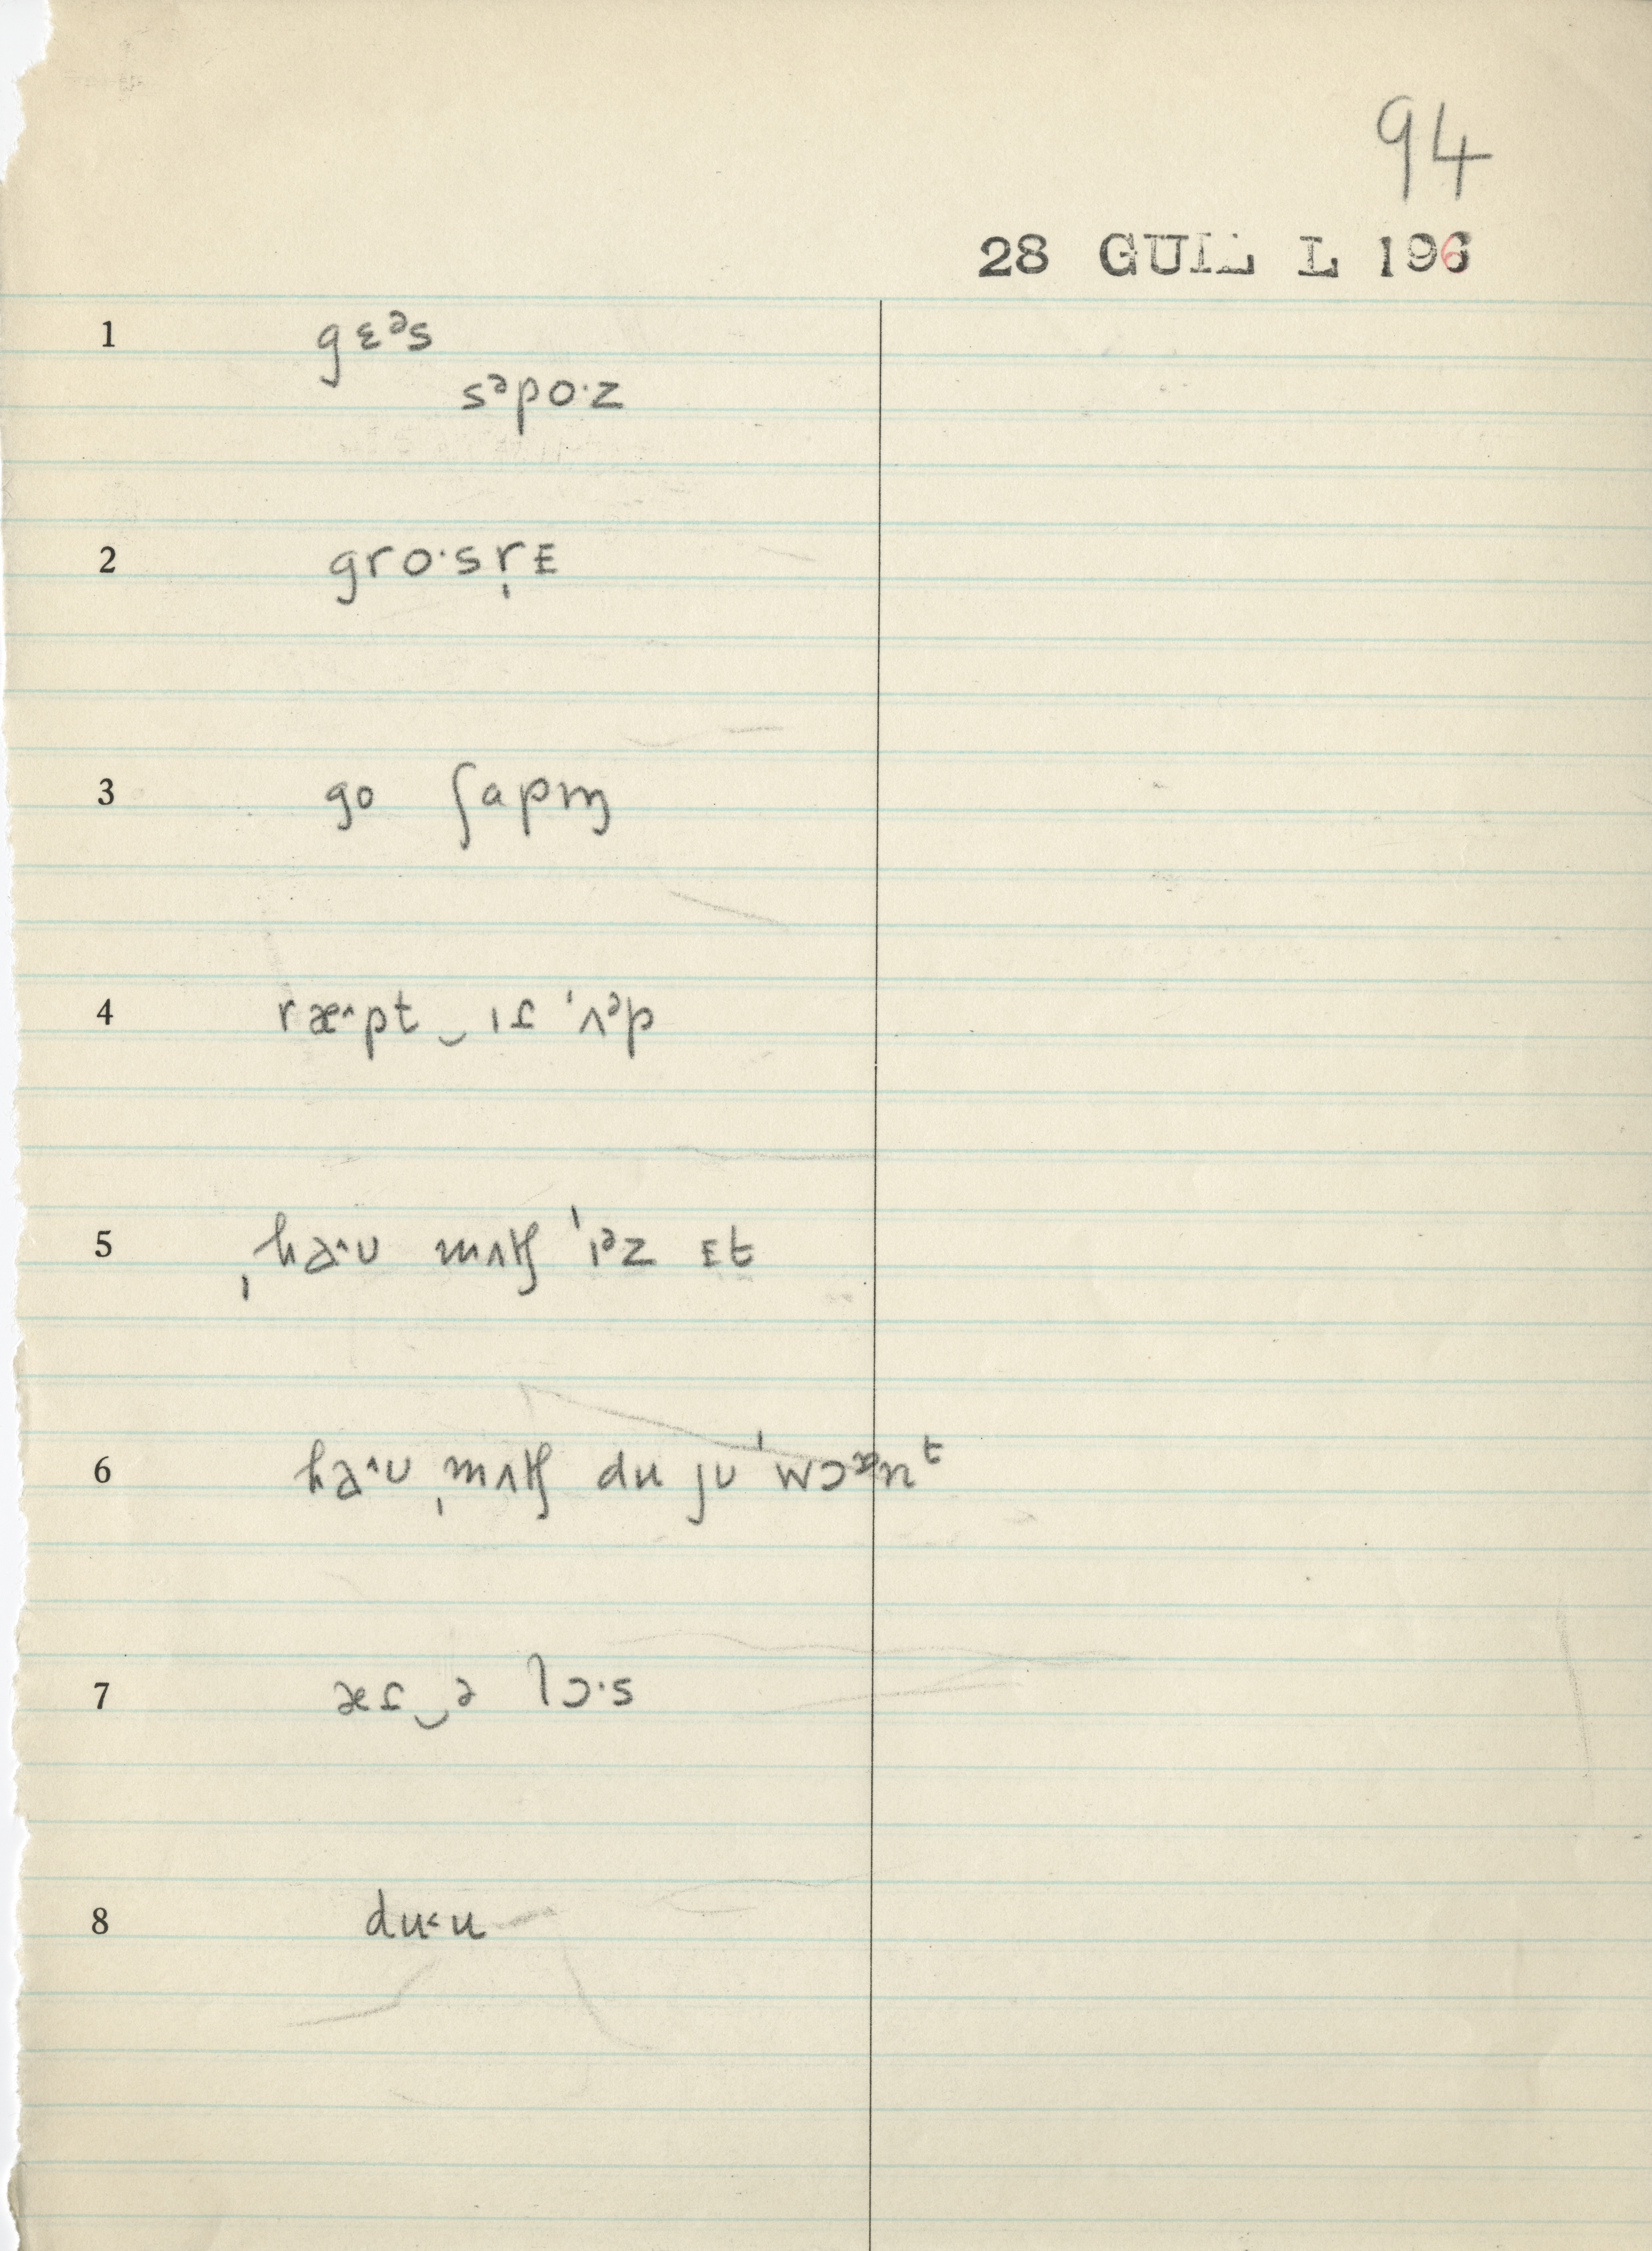 94
28 GUIL L 196
1 gɛᵊs
sᵊpo·z
2 gro·sr̩ᴇ
3 go ʃapɪŋ
4 ræ˄pt‿ɪɾ ˈʌᵊp
5 ˌha˄ʊ mʌtʃ ˈɪᵊz ᴇt̬
6 ha˄ʊ ˌmʌtʃ du jʊ ˈwɔᵊnᵗ
7 æɾ‿ə lɔ·s
8 du˂u